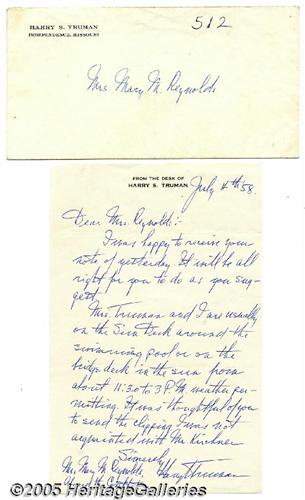 HARRY S. TRUMAN
INDEPENDENCE, MISSOURI
512
Mrs Mary M. Reynolds
FROM THE DESK OF
HARRY S. TRUMAN
July 4th 58.
Dear Mrs. Reynolds:-
I was happy to receive your
note of yesterday. It will be all
right for you to do as you sug-
gest.
Mrs. Truman and I are usually
on the Sun Deck around the
swimming pool or on the
bridge deck in the sun room
about 11:30 to 3 P.M. weather per-
mitting. It was thoughtful of you
to send the clipping. I was not
acquainted with Mr. Kirchner
Sincerely
Mrs. Mary M. Reynolds, Harry Truman
©2005 HeritageGalleries